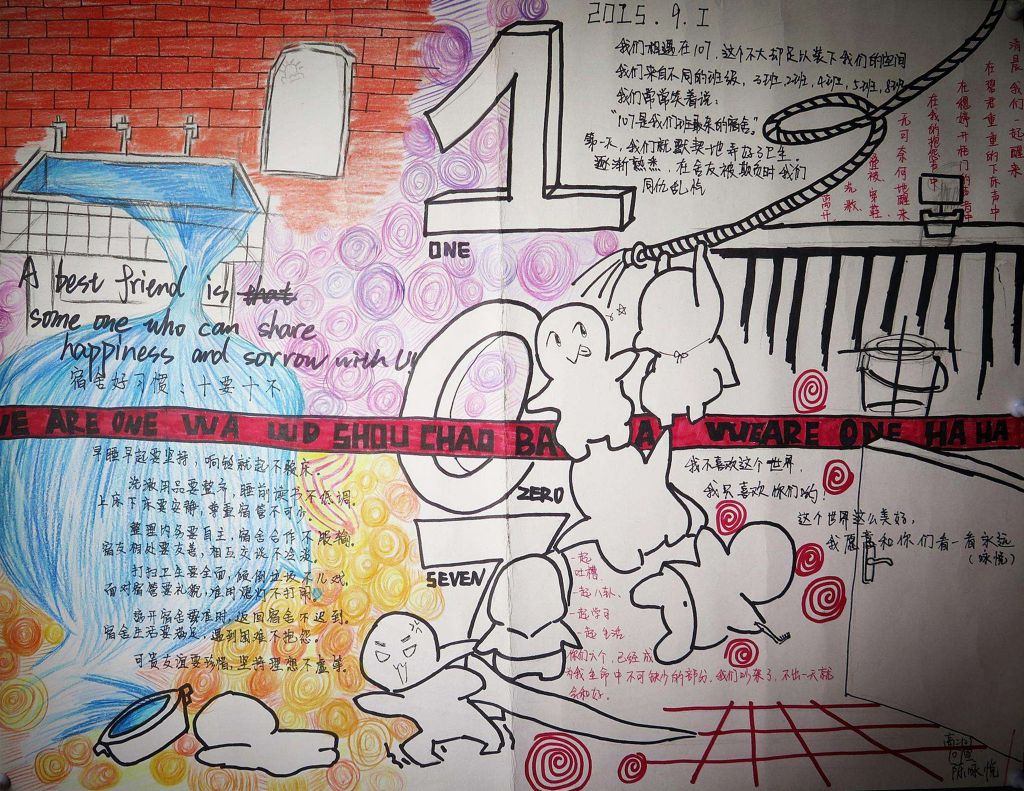 2015.9.1
我们相遇在107,这个不大却足以装下我们的空间
我们来自不同的班级,3班,2班,4班,5班,8班
我们常常笑着说:
"107是我们班最呆的宿舍。"
第一天,我们就默契地弄好了卫生。
逐渐熟悉,在舍友被欺负时我们
同仇乱忾
清晨我们一起醒来
在碧君重重的下床声中
无可奈何地醒来
叠被、穿鞋、
1
ONE
A best friend is that
some one who can share
happiness and sorrow with U!
宿舍好习惯:十要十不
WE ARE ONE WA WUD SHOU CHAO BA A WE ARE ONE HA HA
早睡早起要坚持,响铃就起不赖床。
洗漱用品要整齐,睡前读书不低调。
上床下床要安静,尊重宿管不可少。
整理内务要自主,宿舍合作不服输。
宿友相处要友善,相互交谈不冷漠。
打扫卫生要全面,倾倒垃圾不儿戏。
面对宿管要礼貌,准时熄灯不打闹。
离开宿舍要准时,返回宿舍不迟到。
宿舍生活要满足,遇到困难不抱怨。
可贵友谊要珍惜,坚持理想不虚荣。
0
ZERO
7
SEVEN
我不喜欢这个世界,
我只喜欢你们哟!
这个世界这么美好,
我愿意和你们看一看永远
(咏悦)
一起
吐槽、
一起八卦、
一起学习
一起生活
你们六个,已经成
为我生命中不可缺少的部分。我们吵架了,不出一天就
会和好。
陈咏悦